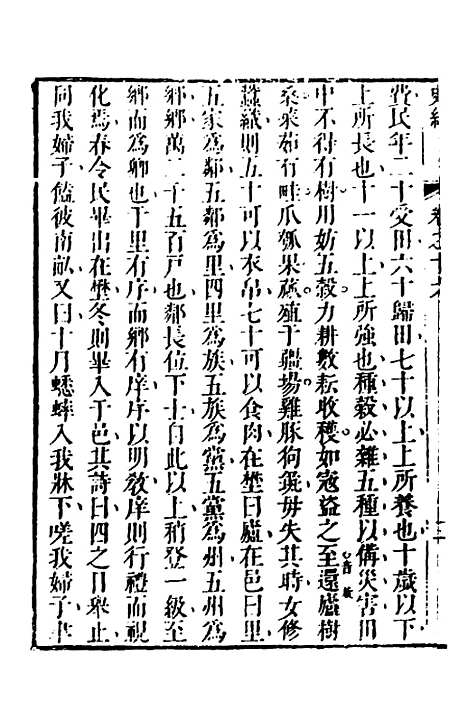 費民年二十受田六十歸田七十以上上所養也十歲以下
上所長也十一以上上所強也種穀必雜五種以備災害田
中不得有樹用妨五穀力耕數耘收穫如寇盜之至還廬樹
桑菜茹有畦瓜瓠果蓏殖于疆場雞豚狗彘毋失其時女修
蠶織則五十可以衣帛七十可以食肉在壄曰廬在邑曰里
五家為鄰五鄰為里四里為族五族為黨五黨為州五州為
鄉鄉萬二千五百戶也鄰長位下士自此以上稍登一級至
鄉而為卿也于里有序而鄉有庠序以明教庠則行禮而視
化焉春令民畢出在壄冬則畢入于邑其詩曰四之日舉止
同我婦子饁彼南畝又曰十月蟋蟀入我牀下嗟我婦子聿